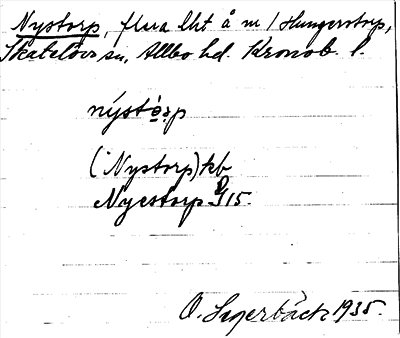 Nystorp, flera lht å m / Hungerstorp,
Skatelövs sn, Allbo hd. Kronob. l.
nýstòrp
(Nystorp) kb
Nyestorp J 15.
O. Lagerbäck 1935.